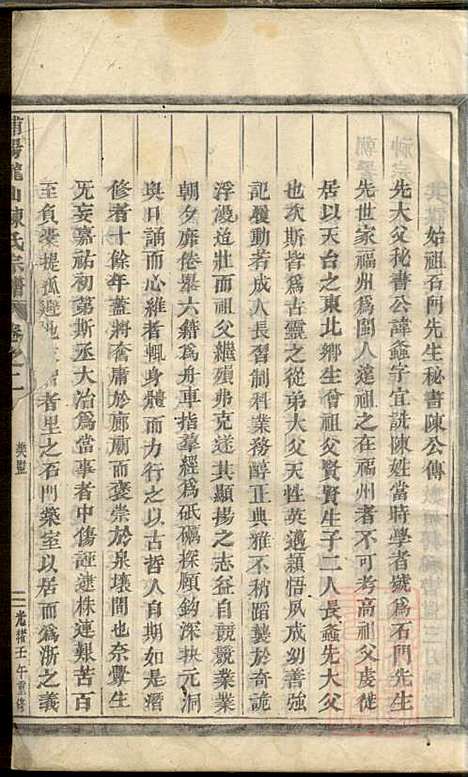 始祖石門先生秘書陳公傳
先大父秘書公諱鱻字宜詵陳姓當時學者號為石門先生
先世家福州為閩人遠祖之在福州者不可考高祖父虔徙
居以天台之東北鄉生曾祖父賢賢生子二人長鱻先大父
也次斯皆為古靈之從弟大父天性英邁穎悟夙成善強
記履動若成人長習制科業務醇正典雅不稍蹈襲於奇詭
浮漫迨壯而祖父繼殞弗克遂其顯揚之志益自競競業業
朝夕靡倦舉六籍為舟車指羣經為砥礪探頤鈎深抉元洞
與口誦而心維者輒身體而力行之以古哲人自期如是潛
修者十餘年蓋將奮庸於廊廟而褒崇於泉壤間也奈釁生
旡妄嘉祐初第斯丞大冶為當事者中傷誣逮株連艱苦百
至負橐提孤避地 者里之石門築室以居而為浙之義
浦陽龍山陳氏宗譜 卷之二 美璧 二 光緒壬午重修